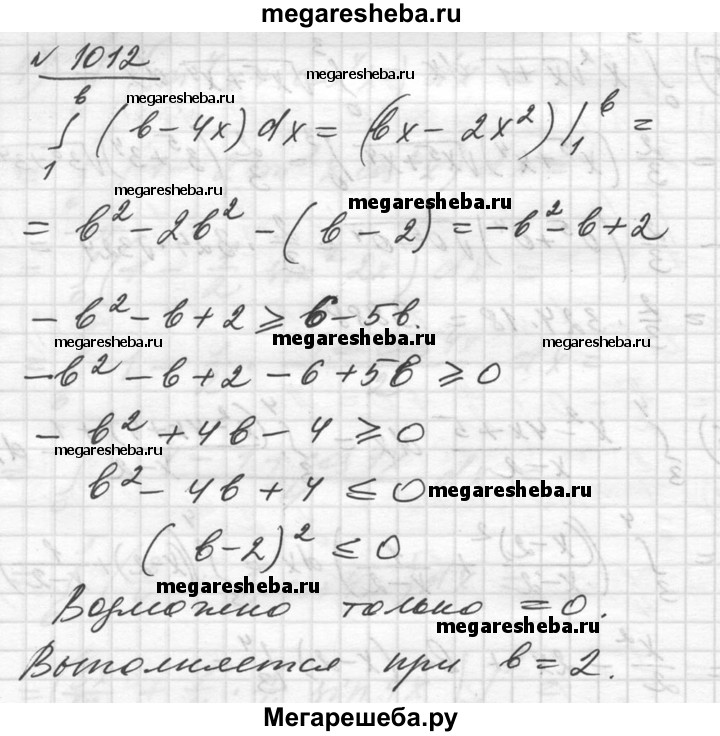 megaresheba.ru
№ 1012
megaresheba.ru
megaresheba.ru
∫₁ᵇ (b - 4x) dx = (bx - 2x²) |₁ᵇ =
megaresheba.ru
megaresheba.ru
= b² - 2b² - (b - 2) = -b² - b + 2
- b² - b + 2 ≥ 6 - 5b.
megaresheba.ru
megaresheba.ru
megaresheba.ru
-b² - b + 2 - 6 + 5b ≥ 0
- b² + 4b - 4 ≥ 0
megaresheba.ru
b² - 4b + 4 ≤ 0
megaresheba.ru
(b - 2)² ≤ 0
megaresheba.ru
Возможно только = 0.
megaresheba.ru
Выполняется при b = 2.
Мегарешеба.ру